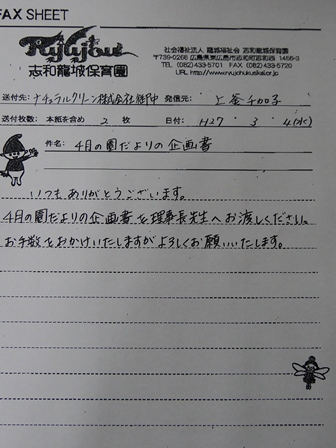 FAX SHEET
Ryujou
志和龍城保育園
社会福祉法人 龍城福祉会 志和龍城保育園
〒739-0266 広島県東広島市志和町志和西 1456-3
TEL (082)433-5701 FAX (082)433-5720
送付先: ナチュラルクリーン株式会社
発信元: 上釜
送付枚数: 本紙を含め 2 枚
日付: H27・3・4(水)
件名: 4月の園だよりの企画書
いつもありがとうございます。
4月の園だよりの企画書を理事長先生へお渡しください。
お手数をおかけいたしますがよろしくお願いいたします。